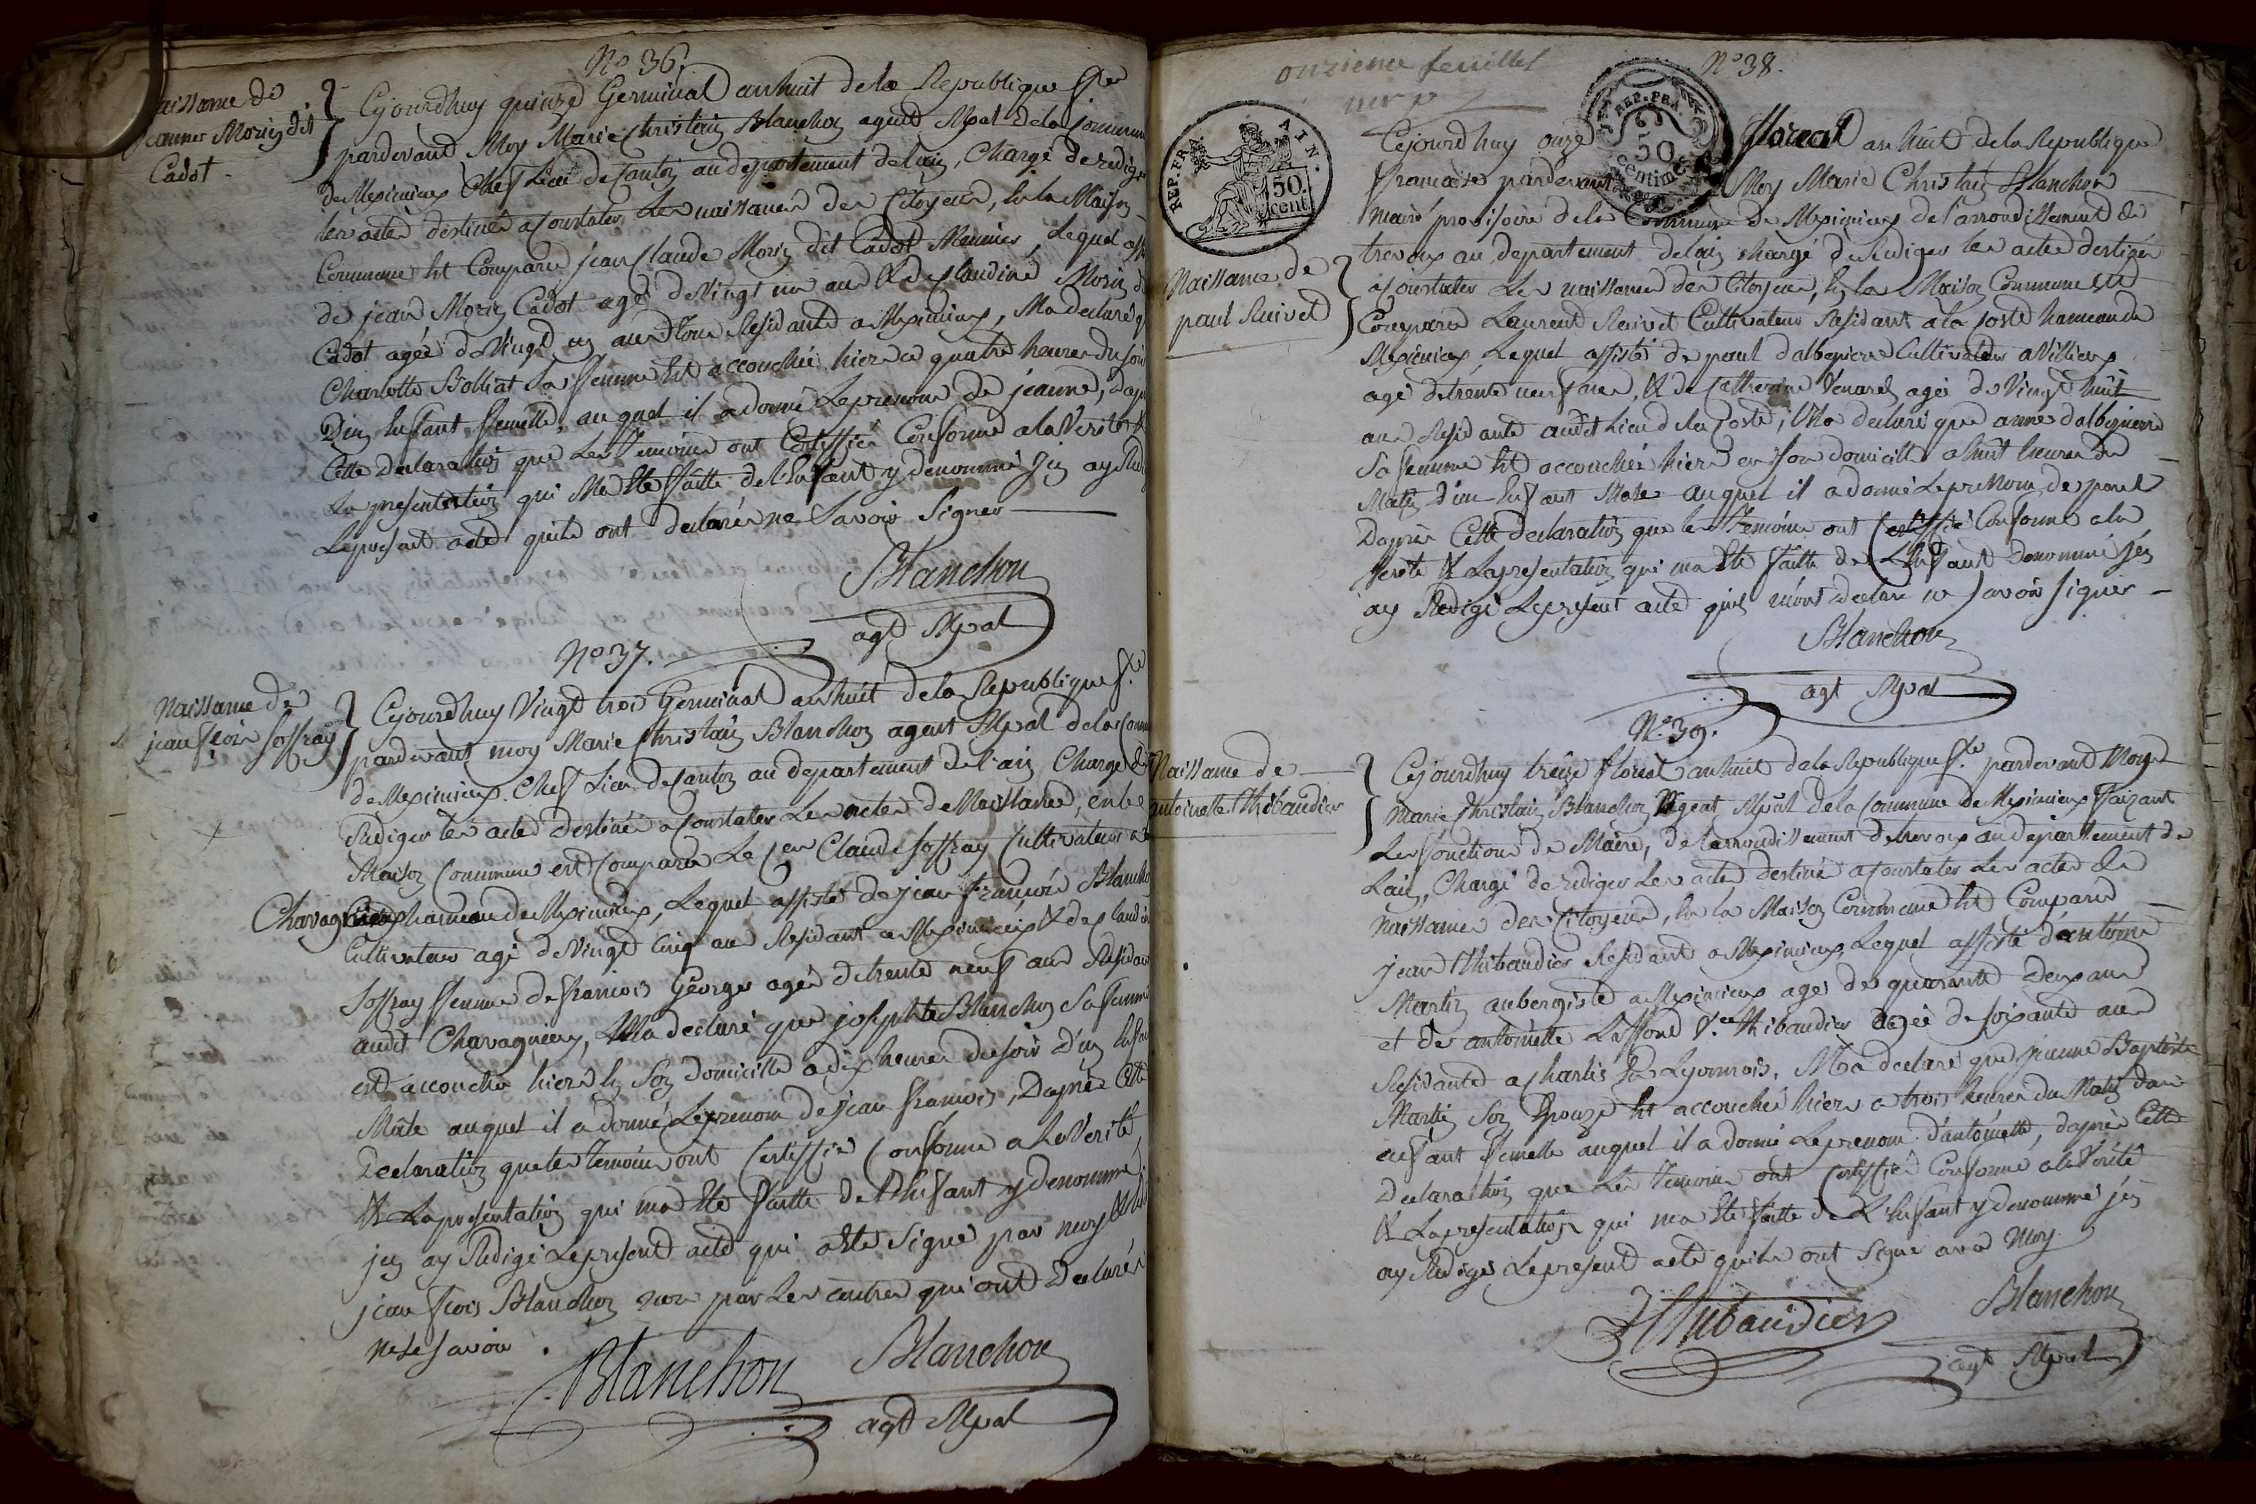 N° 36.
Naissance de
jeanne Morin dit
Cadot.
Cejourdhuy quinze Germinal an huit de la Republique fse
pardevant Moy Marie Christain Blanchon agent Mpal de la Commune
de Meximieux Chef Lieu de Canton au departement de lain, Chargé de rediger
les actes destinés a Constater Les naissances des Citoyens, En la Maison
Commune Est Comparu jean Claude Morin dit Cadot Meunier, Lequel assisté
de jean Morin Cadot agé de Vingt un ans & de Claudine Morin dit
Cadot agée de Vingt un ans Tous Residants a Meximieux, M'a declaré que
Charlotte Bolliat Sa femme Est accouchée hiere a quatre heures du soir
D'un Enfant femelle, auquel il a donné Le prenom de jeanne, D'après
Cette Declaration que Les Temoins ont Certiffié Conforme a la Verité &
La presentation qui M'a Ete faitte de l'Enfant y denommé J'en ay Redigé
Le present acte qu'ils ont declarés ne Savoir Signer
Blanchon
agt Mpal
N° 37.
Naissance de
jean fçois joffray
Cejourdhuy Vingt trois Germinal an huit de la Republique fse
pardevant moy Marie Christain Blanchon agent Mpal de la Commune
de Meximieux Chef Lieu de Canton au departement de l'ain Chargé de
Rediger les actes destinés a Constater Les actes de Naissance, en la
Maison Commune est Comparu Le Cen Claude joffray Cultivateur a
Chavagnieux hameau de Meximieux, Lequel assisté de jean françois Blanchon
Cultivateur agé de Vingt Cinq ans Residant a Meximieux & de Claudine
joffray femme de françois George agée de trente neuf ans Residant
audit Chavagnieux, M'a declaré que josephte Blanchon Sa femme
est accouchée hiere En Son domicille a dix heures du soir D'un Enfant
Mâle auquel il a donné Le prenom de jean françois, D'après Cette
Declaration que les temoins ont Certiffié Conforme a La Verité,
& La presentation qui m'a Ete faitte de l'Enfant y denommé,
j'en ay Redigé Le present acte qui a Ete Signé par moy &
jean fçois Blanchon non par Les autres qui ont Declarés
ne Le Savoir.
Blanchon Blanchon
agt Mpal
onzieme feuillet
N° 38.
REP. FRA. AIN.
50. cent.
REP. FRA.
50
Centimes
Naissance de
paul Ruivet
Cejourdhuy onze floreal an huit de la Republique
francaise pardevant Moy Marie Christain Blanchon
maire provisoire de la Commune de Meximieux de l'arrondissement de
trevoux au departement de lain chargé de Rediger les actes destinés
a Constater Les naissances des Citoyens, En la Maison Commune Est
Comparu Laurent Ruivet Cultivateur Residant a la Coste hameau de
Meximieux Lequel assisté de paul dalbepierre Cultivateur a Villieux
agé de trente neuf ans, & de Catherine Venard agée de Vingt huit
ans Residante audit Lieu de la Coste, M'a declaré que anne dalbepierre
Sa femme Est accouchée hiere en son domicille a huit heures du
Matin d'un Enfant Male auquel il a donné Le prenom de paul
D'après Cette declaration que les Temoins ont Certiffié Conforme a la
Verité & La presentation qui m'a Ete faitte de L'Enfant Denommé j'en
ay Redigé Le present acte qu'ils m'ont declaré ne Savoir Signer
Blanchon
agt Mpal
N° 39.
Naissance de
antoinette Thibaudier
Cejourdhuy treize floreal an huit de la Republique fse pardevant Moy
Marie Christain Blanchon Agent Mpal de la Commune de Meximieux faizant
Les fonctions de Maire, de l'arrondissement de trevoux au departement de
Lain, Chargé de rediger Les actes destinés a Constater Les actes de
naissance des Citoyens, En la Maison Commune Est Comparu
jean Thibaudier Residant a Meximieux Lequel assisté d'antoine
Martin aubergiste a Meximieux agés de quarante Deux ans
et de antoinette Laffond Ve Thibaudier agée de soixante ans
Residante a Charlis En Lyonnois, M'a declaré que jeanne Baptiste
Martin Son Epouze Est accouchée hiere a trois heures du Matin d'un
enfant femelle auquel il a donné Le prenom d'antoinette, d'après Cette
Declaration que Les Temoins ont Certiffié Conforme a la Verité
& La presentation qui m'a Ete faitte de L'Enfant y denommé j'en
ay Redigé Le present acte qu'ils ont Signé avec Moy
JThibaudier Blanchon
agt Mpal